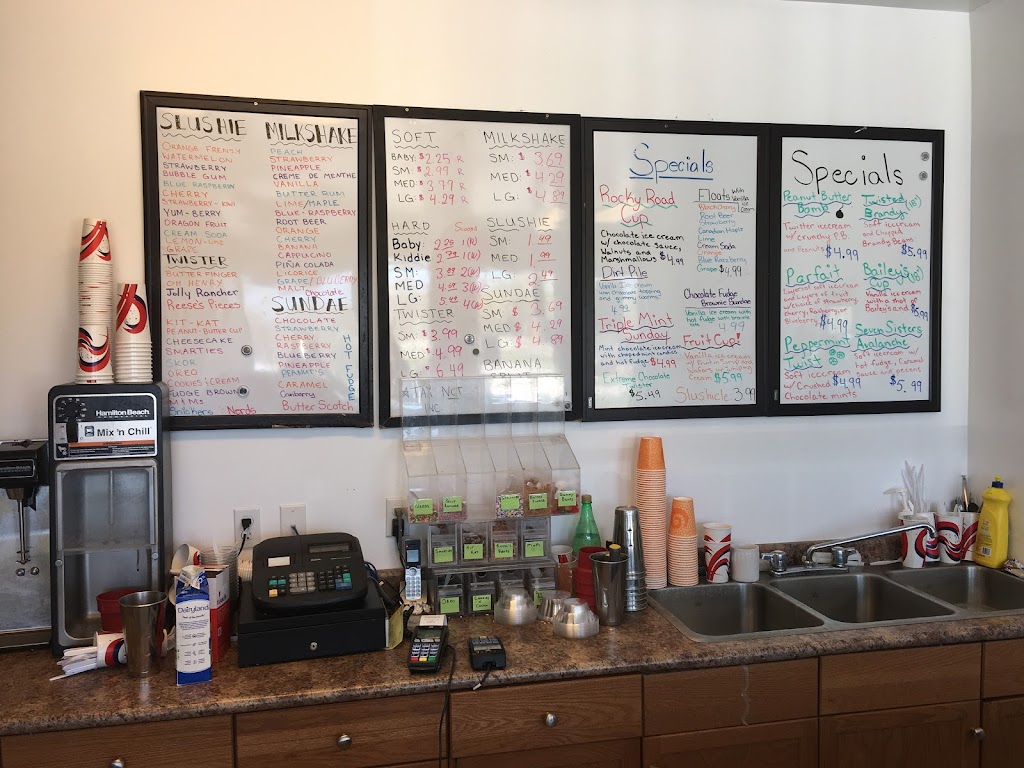 SLUSHIE
ORANGE FRENZY
WATERMELON
STRAWBERRY
BUBBLE GUM
BLUE RASPBERRY
CHERRY
STRAWBERRY - KIWI
YUM-BERRY
DRAGON FRUIT
CREAM SODA
LEMON-LIME
GRAPE
TWISTER
BUTTERFINGER
OH HENRY
Jolly Rancher
Reeses Pieces
KIT-KAT
PEANUT-BUTTER CUP
CHEESECAKE
SMARTIES
SKOR
OREO
COOKIES & CREAM
FUDGE BROWNIE
M&Ms
Snickers Nerds
MILKSHAKE
PEACH
STRAWBERRY
PINEAPPLE
CRÈME DE MENTHE
VANILLA
BUTTER RUM
LIME/MAPLE
BLUE-RASPBERRY
ROOT BEER
ORANGE
CHERRY
BANANA
CAPPUCINO
PIÑA COLADA
LICORICE
GRAPE/BLUEBERRY
MALT Chocolate
SUNDAE
CHOCOLATE
STRAWBERRY
CHERRY
RASPBERRY
BLUEBERRY
PINEAPPLE
PEANUTS
CARAMEL
Cranberry
Butter Scotch
HOT FUDGE
SOFT
BABY: $2.25 R
SM: $2.99 R
MED: $3.79 R
LG: $4.29 R
HARD
Baby:
Kiddie
SM:
MED
LG:
TWISTER
SM: $3.99
MED $4.99
LG: $6.49
MILKSHAKE
SM: $3.69
MED: $4.29
LG: $4.89
SLUSHIE
SM: 1.49
MED 1.99
LG: 2.49
SUNDAE
SM: $3.69
MED $4.29
LG: $4.89
BANANA
TAX NOT
INC
Specials
Rocky Road
Cup
Chocolate ice cream
w/ chocolate sauce,
Walnuts and
Marshmallows $4.99
Dirt Pile
4.99
Triple Mint
Sunday
Mint chocolate ice cream
with chopped mint candies
and hot fudge $4.99
Extreme Chocolate
Twister
$5.49
Floats With Vanilla Ice Cream
Black Cherry
Root Beer
Strawberry
Canadian Maple
Lime
Cream Soda
Orange
Blue Raspberry
Grape $4.99
Chocolate Fudge
Brownie Sundae
Vanilla ice cream with
hot fudge with brownie
4.99
Fruit Cup!
Cream $5.99
Slushicle 3.99
Specials
Peanut Butter
Bomb
Twister ice cream
w/ crunchy P.B.
and Peanuts $4.99
Parfait
Cup
$4.99
Peppermint
Twist
Soft ice cream
w/ Crushed $4.99
Chocolate mints
Twisted
Brandy (18+)
Soft ice cream
and Chopped
Brandy Beans
$5.99
Bailey's (18+)
Vanilla ice cream
with a shot of
Baileys and
$5.99
Seven Sisters
Avalanche
Soft ice cream w/
hot Fudge, Caramel
sauce and pecans
$5.99
Hamilton Beach
COMMERCIAL
Mix 'n Chill
Dairyland